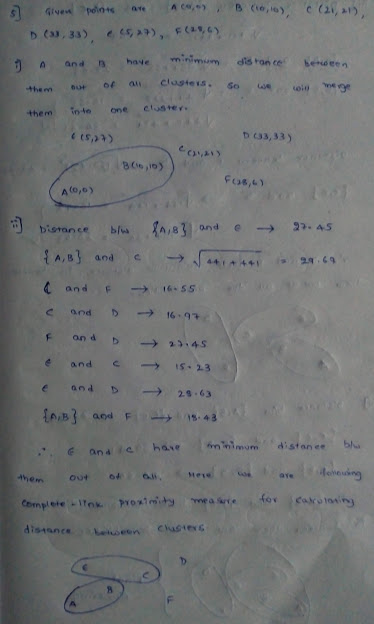 5] Given points are A(0,0), B(10,10), C(21,21),
D(33,33), E(5,27), F(28,6)
i] A and B have minimum distance between
them out of all clusters. So we will merge
them into one cluster.
E(5,27) D(33,33)
C(21,21)
B(10,10)
F(28,6)
A(0,0)
ii] Distance b/w {A,B} and E → 27.45
{A,B} and C → √441+441 = 29.69
C and F → 16.55
C and D → 16.97
F and D → 27.45
E and C → 15.23
E and D → 28.63
{A,B} and F → 18.43
∴ E and C have minimum distance b/w
them out of all. Here we are following
complete-link proximity measure for calculating
distance between clusters.
E D
C
B
A F